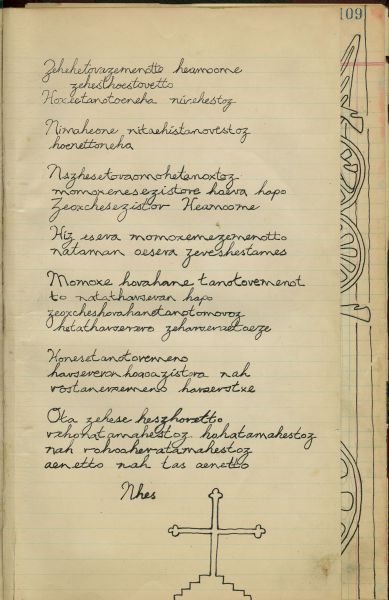 109
Zehehetovazemenotto heamoome
zehesthoestovetto
Hoxeetanotoeneha nivehestoz
Nimaheone nitaehistanovestoz
hoenettoneha
Nszhesetovaomohetanoxtoz
momoxenesezistove haeva hapo
Zeoxchesezistov Heamoome
Hiz eseva momoxemezemenotto
nataman oeseva zeveshestames
Momoxe hovahane tanotovemenot
to natathavsevan hapo
zeoxcheshovahanetanotomovoz
hetathavsevevo zehavsevaetaeze
Honesetanotovemeno
havsevevan hogoazistova nah
vostanevxemeno havsevstxe
Ota zehese heszhovetto
vxhohatamahestoz hohatamahestoz
nah vohoahevatamahestoz
aenetto nah tas aenetto
Nhes